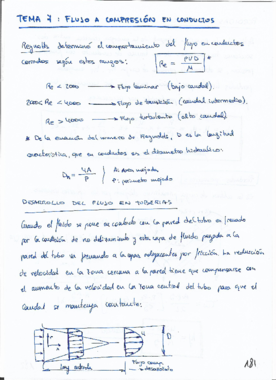 TEMA 7: FLUJO A COMPRESIÓN EN CONDUCTOS
Reynolds determinó el comportamiento del flujo en conductos
cerrados según estos rangos: Re = ρVD / μ *
Re < 2000 → Flujo laminar (bajo caudal).
2000 < Re < 4000 → Flujo de transición (caudal intermedio).
Re > 4000 → Flujo turbulento (alto caudal).
* De la ecuación del número de Reynolds, D es la longitud
característica, que en conductos es el diámetro hidráulico:
Dh = 4A / P
A: Área mojada
P: perímetro mojado
DESARROLLO DEL FLUJO EN TUBERÍAS
Cuando el fluido se pone en contacto con la pared del tubo es frenado
por la condición de no deslizamiento y esta capa de fluido pegada a la
pared del tubo va frenando a la capas adyacentes por fricción. La reducción
de velocidad en la zona cercana a la pared tiene que compensarse con
el aumento de la velocidad en la zona central del tubo para que el
caudal se mantenga constante:
D
Long. entrada
Flujo comp.
desarrollado
181